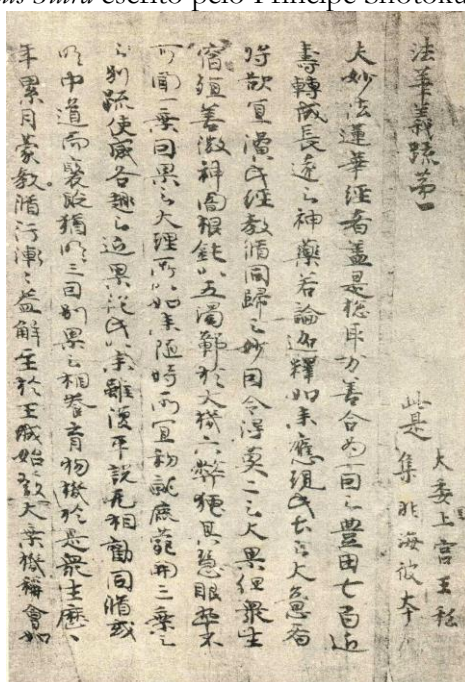 us Sutra escrito pelo Príncipe Shotoku
法華義疏第一
大委上宮王私
此是 集非海彼本
夫妙法蓮華經者蓋是惣取万善合為一因之豊田七百近
壽轉成長遠之神藥若論迦釋如来應現此土之大意者
将欲宜演此經教脩同歸之妙因令得莫二之大果但衆生
宿殖善微神闇根鈍以五濁鄣於大機六弊掩其慧眼卒不
可聞一乗因果之大理所以如来随時所宜初就鹿苑開三乗之
別疏使感各趣之近果従此以来雖復平説无相勧同脩或
明中道而褒貶猶明三因別果之相養育物機於是衆生歴
年累月蒙教脩行漸々益解至於王城始發大乗機稱會如